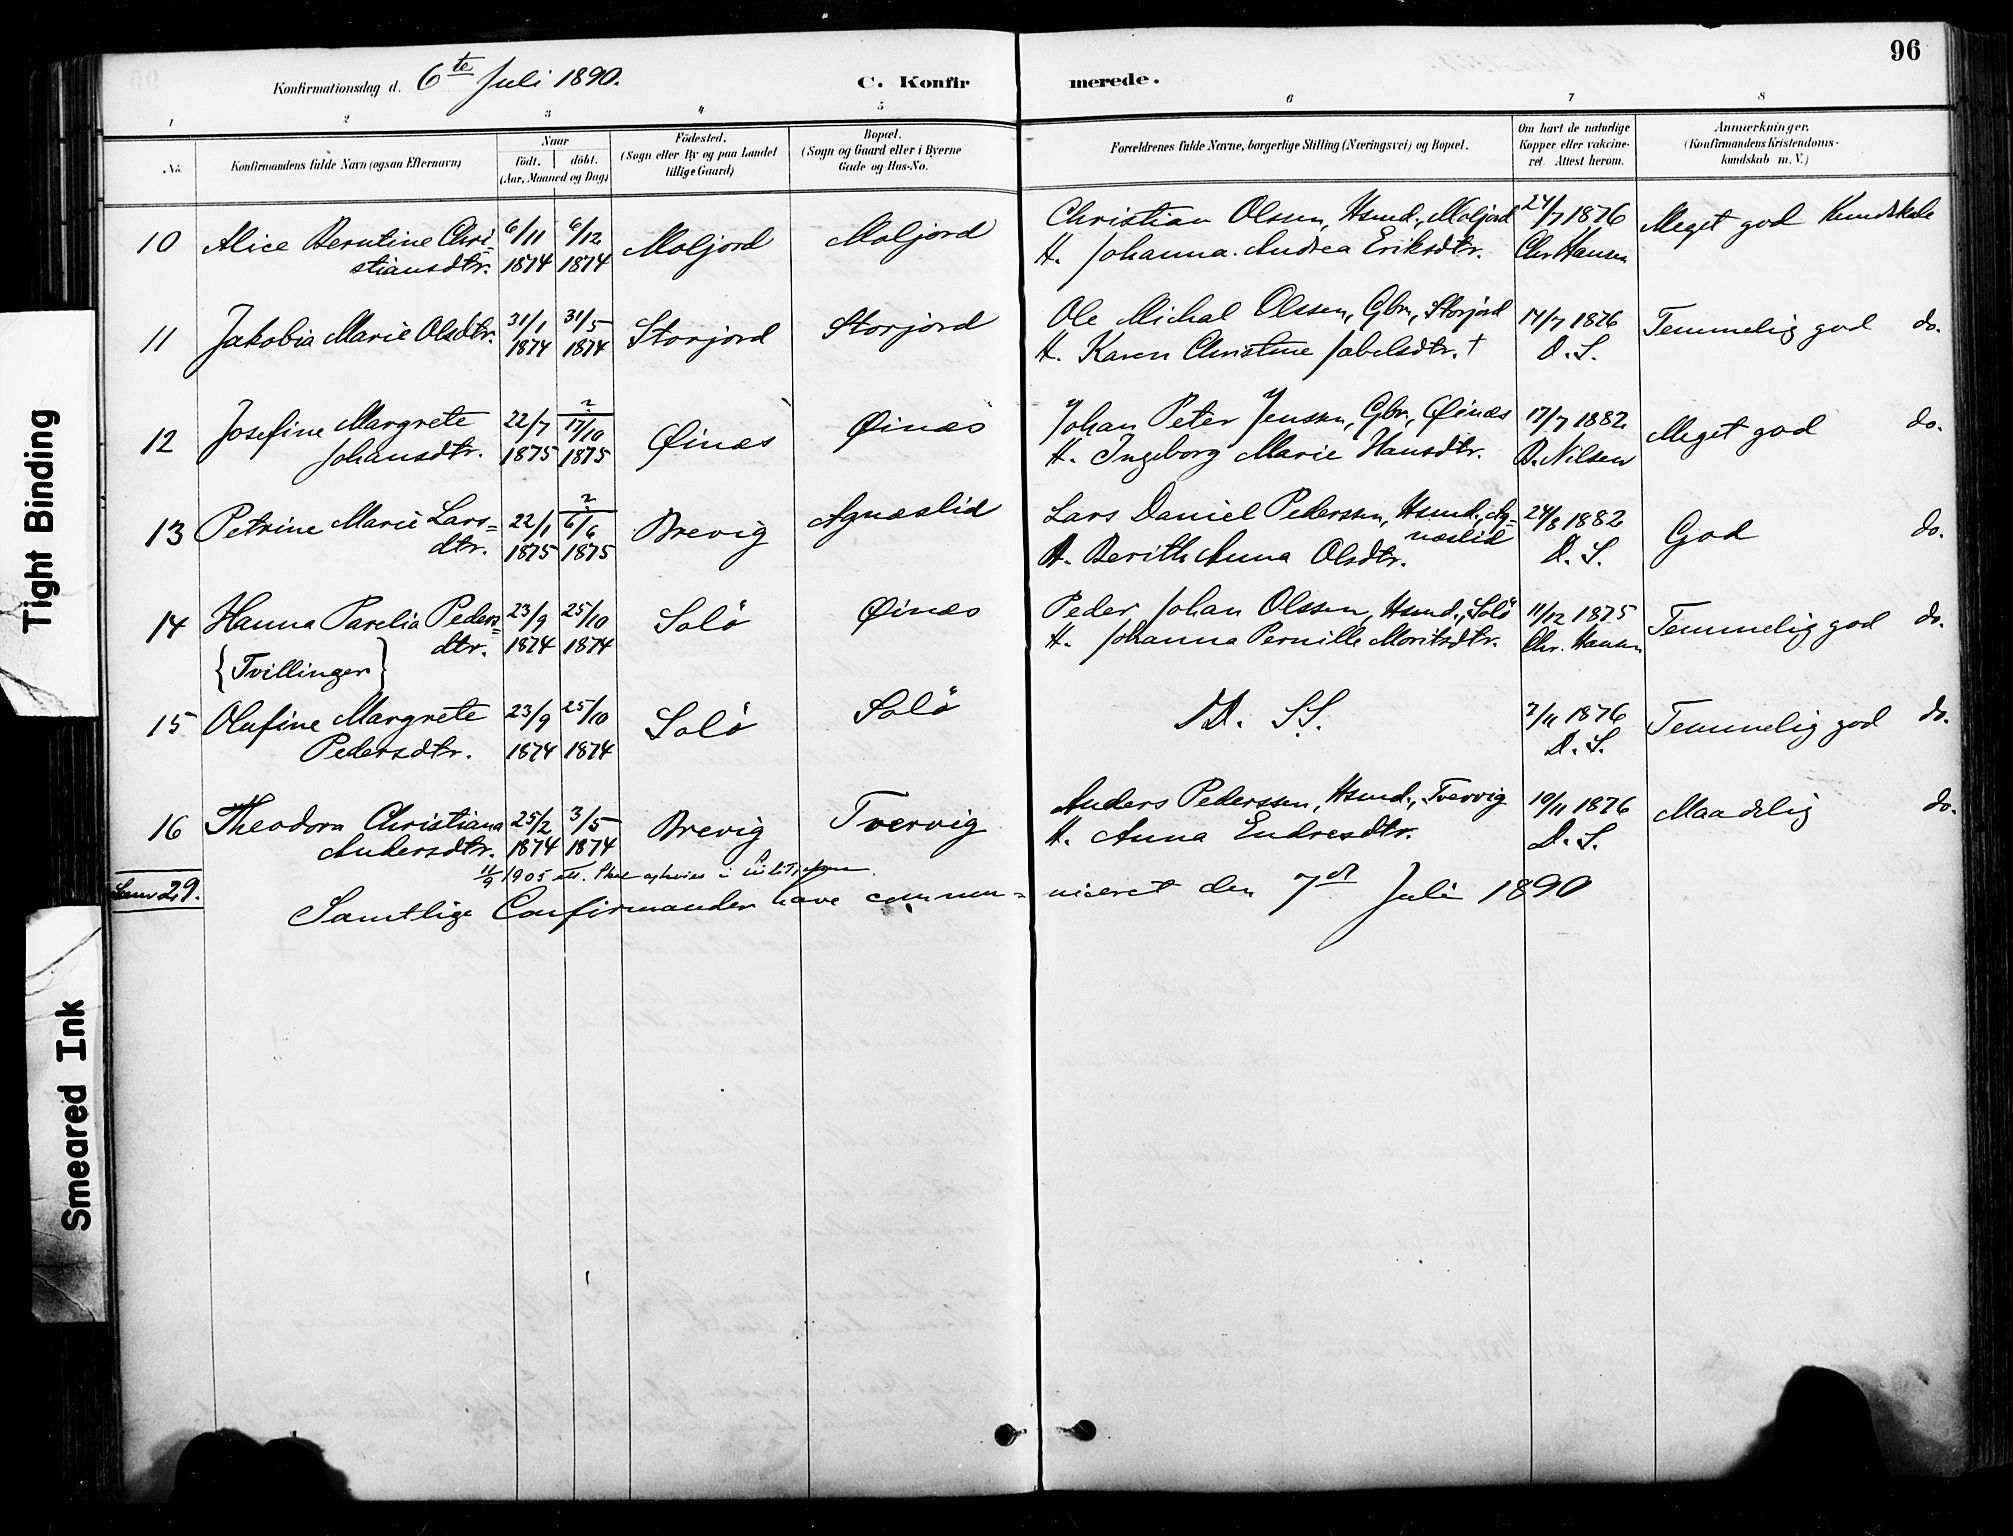 96
Konfirmationsdag d. 6te Juli 1890.
C. Konfirmerede.
1 2 3 4 5 6 7 8
No.
Konfirmandens fulde Navn (ogsaa Efternavn)
Naar
födt. döbt.
(Aar, Maaned og Dag)
Födested.
(Sogn eller By og paa Landet
tillige Gaard)
Bopæl.
(Sogn og Gaard eller i Byerne
Gade og Hus-No.
Forældrenes fulde Navne, borgerlige Stilling (Næringsvei) og Bopæl.
Om havt de naturlige
Kopper eller vakcine-
ret. Attest herom.
Anmærkninger.
(Konfirmandens Kristendoms-
kundskab m. V.)
10 Alice Berntine Chri- 6/11 6/12 Moljord Moljord Christian Olssen, Hsmd., Moljord 24/7 1876 Meget god Kundskab
stiansdtr. 1874 1874 H. Johanna Andrea Eriksdtr. Chr Hansen
11 Jakobia Marie Olsdtr. 31/1 31/5 Storjord Storjord Ole Michal Olssen, Gbr., Storjord 17/7 1876 Temmelig god do.
1874 1874 H. Karen Christine Jabelsdtr. † D. S.
12 Josefine Margrete 22/7 17/10 Øinæs Øinæs Johan Peter Jenssen, Gbr., Øinæs 17/7 1882 Meget god do.
Johansdtr. 1875 1875 H. Ingeborg Marie Hansdtr. D. Nilsen
13 Petrine Marie Lars= 22/1 6/6 Brevig Agnæslid Lars Daniel Pederssen, Hsmd., Ag= 24/8 1882 God do.
dtr. 1875 1875 H. Berith Anna Olsdtr. næslid D. S.
14 Hanna Parelia Peders= 23/9 25/10 Solö Øinæs Peder Johan Olssen, Hsmd., Solö 11/12 1875 Temmelig god do.
dtr. 1874 1874 H. Johanna Pernille Moritsdtr. Chr. Hansen
{Tvillinger}
15 Olufine Margrete 23/9 25/10 Solö Solö DD. SS. 2/11 1876 Temmelig god do.
Pedersdtr. 1874 1874 D. S.
16 Theodora Christiana 25/2 3/5 Brevig Tvervig Anders Pederssen, Hsmd., Tvervig 19/11 1876 Maadelig do.
Andersdtr. 1874 1874 H. Anna Endresdtr. D. S.
11/9 1905 att.
29.
Samtlige Confirmander have commu=niceret den 7de Juli 1890
Tight Binding
Smeared Ink